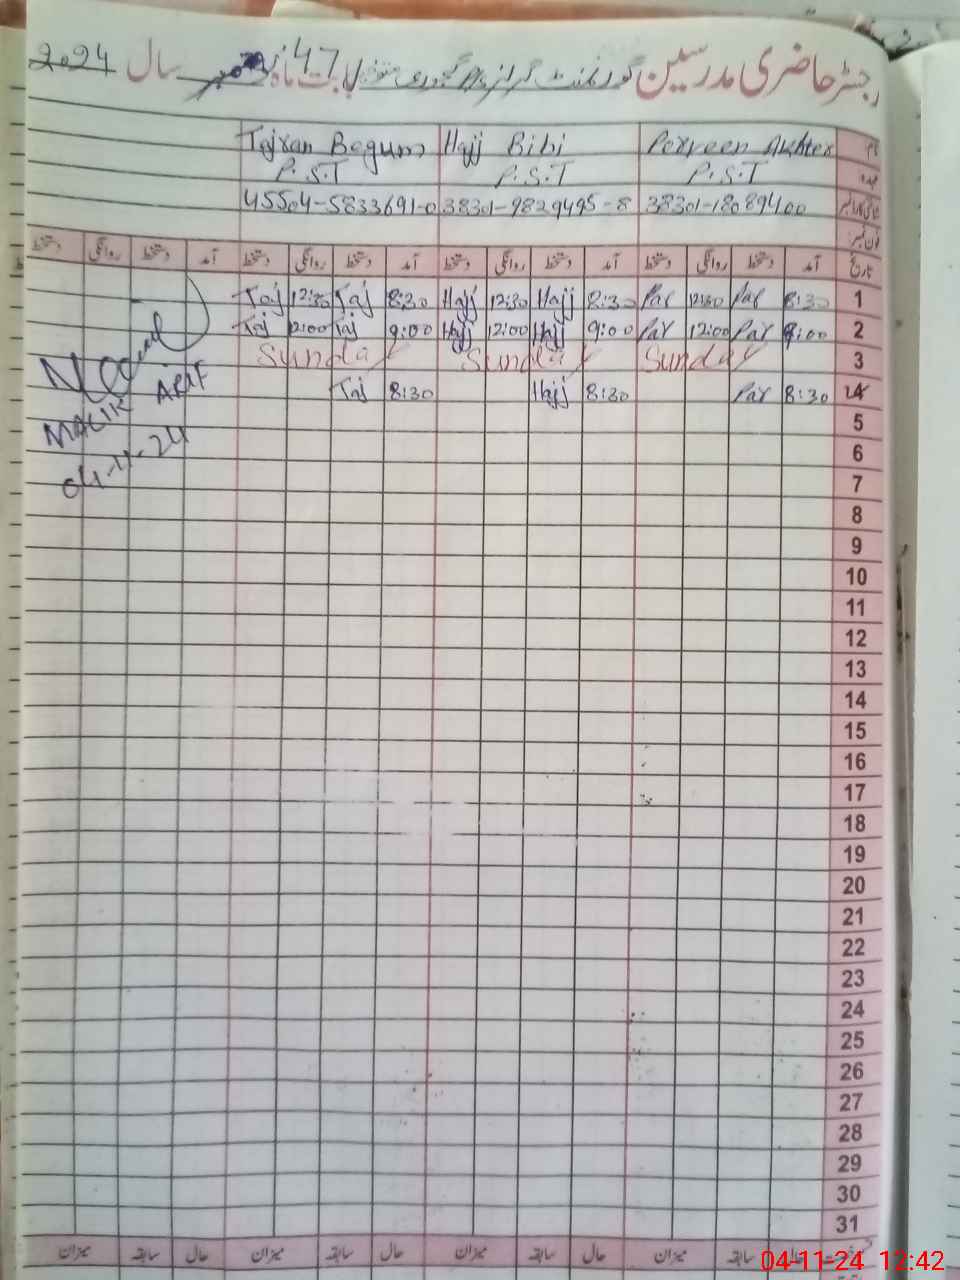 رجسٹر حاضری مدرسین گورنمنٹ گرلز بابت ماہ نومبر سال 2024
نام Perveen Akhter Hajj Bibi Tajran Begum
عہدہ P.S.T P.S.T P.S.T
شناختی کارڈ نمبر 38301-1808940 38301-9829495-8 45504-5833691-0
فون نمبر:
تاریخ آمد دستخط روانگی دستخط آمد دستخط روانگی دستخط آمد دستخط روانگی دستخط آمد دستخط روانگی دستخط
1 8:30 Par 12:30 Par 8:30 Hajj 12:30 Hajj 8:30 Taj 12:30 Taj
2 9:00 Par 12:00 Par 9:00 Hajj 12:00 Hajj 9:00 Taj 12:00 Taj
3 Sunday Sunday Sunday
4 8:30 Par 8:30 Hajj 8:30 Taj
MALIK ARIF
04-11-24
5
6
7
8
9
10
11
12
13
14
15
16
17
18
19
20
21
22
23
24
25
26
27
28
29
30
31
حال سابقہ میزان حال سابقہ میزان حال سابقہ میزان حال سابقہ میزان
04-11-24 12:42